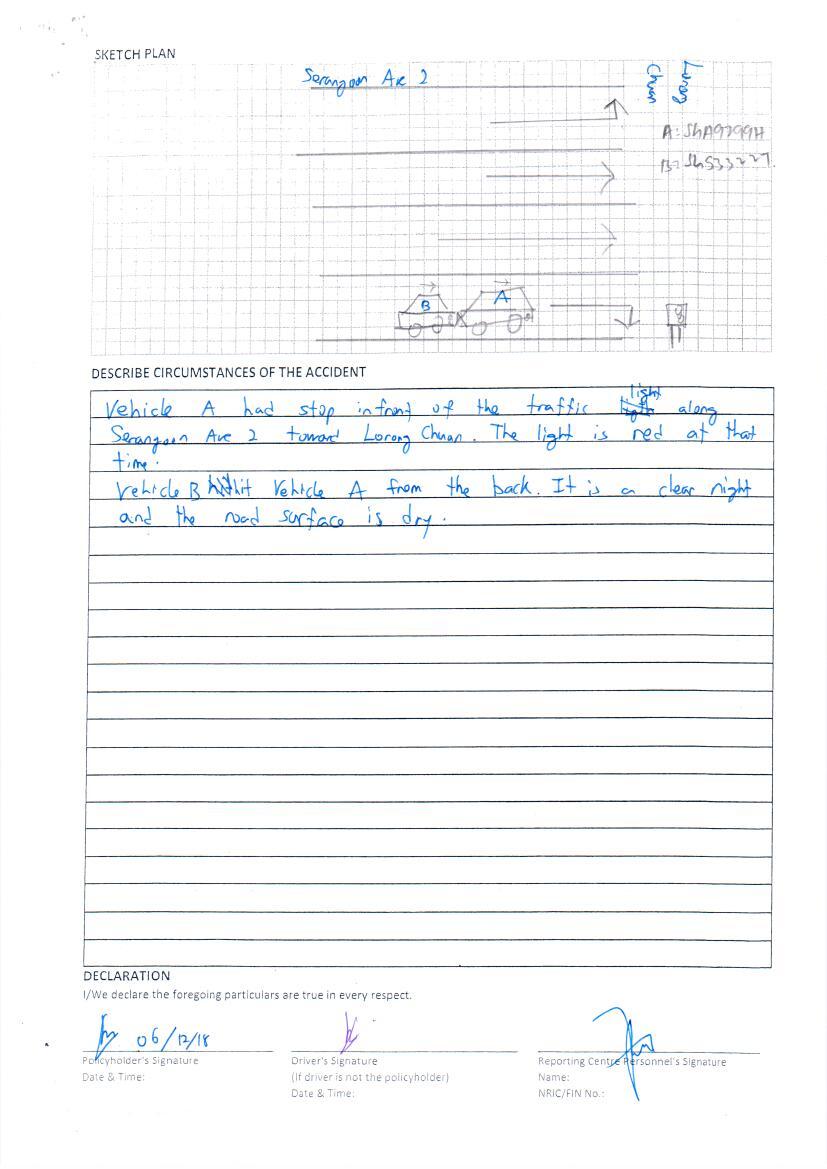 SKETCH PLAN
Serangoon Ave 2
Lorong
Chuan
A: SHA9799H
B:
B
A
DESCRIBE CIRCUMSTANCES OF THE ACCIDENT
light
Vehicle A had stop infront of the traffic along
Serangoon Ave 2 toward Lorong Chuan. The light is red at that
time.
Vehicle B hit Vehicle A from the back. It is a clear night
and the road surface is dry.
DECLARATION
I/We declare the foregoing particulars are true in every respect.
06/12/18
Policyholder's Signature
Date & Time:
Driver's Signature
(If driver is not the policyholder)
Date & Time:
Reporting Centre Personnel's Signature
Name:
NRIC/FIN No.: